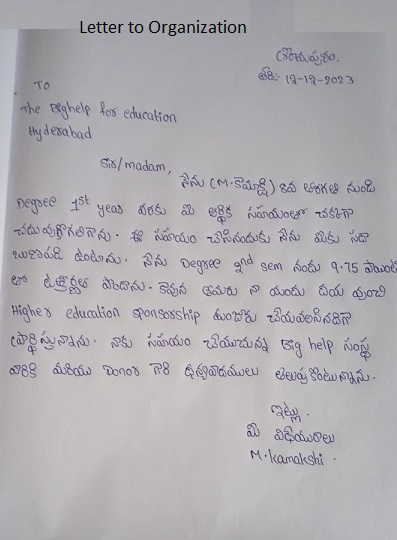 Letter to Organization
తేది:- 12-12-2023
To
The Bighelp for education
Hyderabad
sir/madam,
నేను (M. కామాక్షి) 8వ తరగతి నుండి
Degree 1st year వరకు మీ ఆర్థిక సహాయంతో చక్కగా
చదువుకోగలిగాను. ఈ సహాయం చేసినందుకు నేను మీకు సదా
ఋణపడి ఉంటాను. నేను Degree 2nd sem నందు 9.75 పాయింట్
లో ఉత్తీర్ణత పొందాను. కావున తమరు నా యందు దయ వుంచి
Higher education sponsorship మంజూరు చేయవలసినదిగా
ప్రార్థిస్తున్నాను. నాకు సహాయం చేయుచున్న Big help సంస్థ
వారికి మరియు Donor గారికి ధన్యవాదములు తెలుపుకొంటున్నాను.
ఇట్లు.
మీ విధేయురాలు
M. Kamakshi.